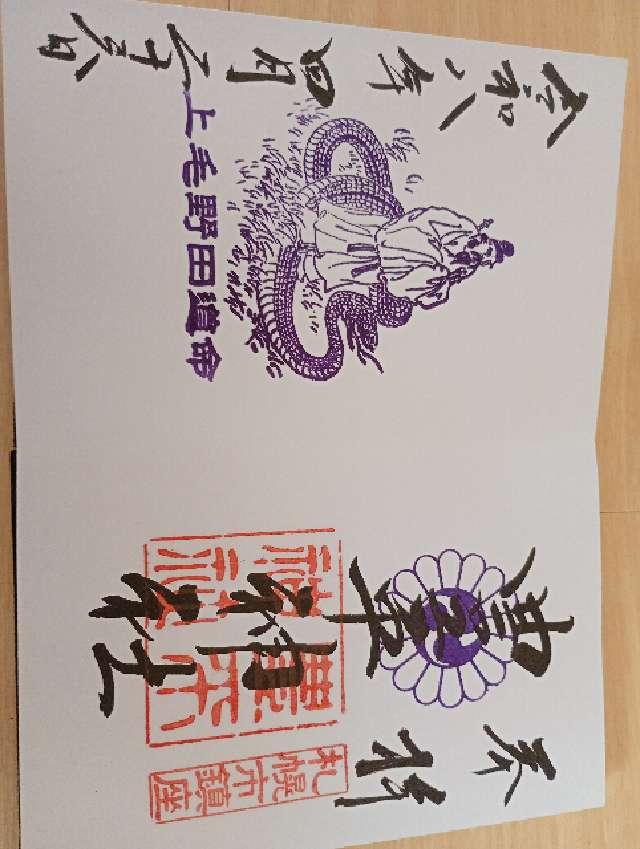 奉拝
豊平神社
豊平神社
札幌市鎮座
上毛野田道命
令和八年四月二十八日